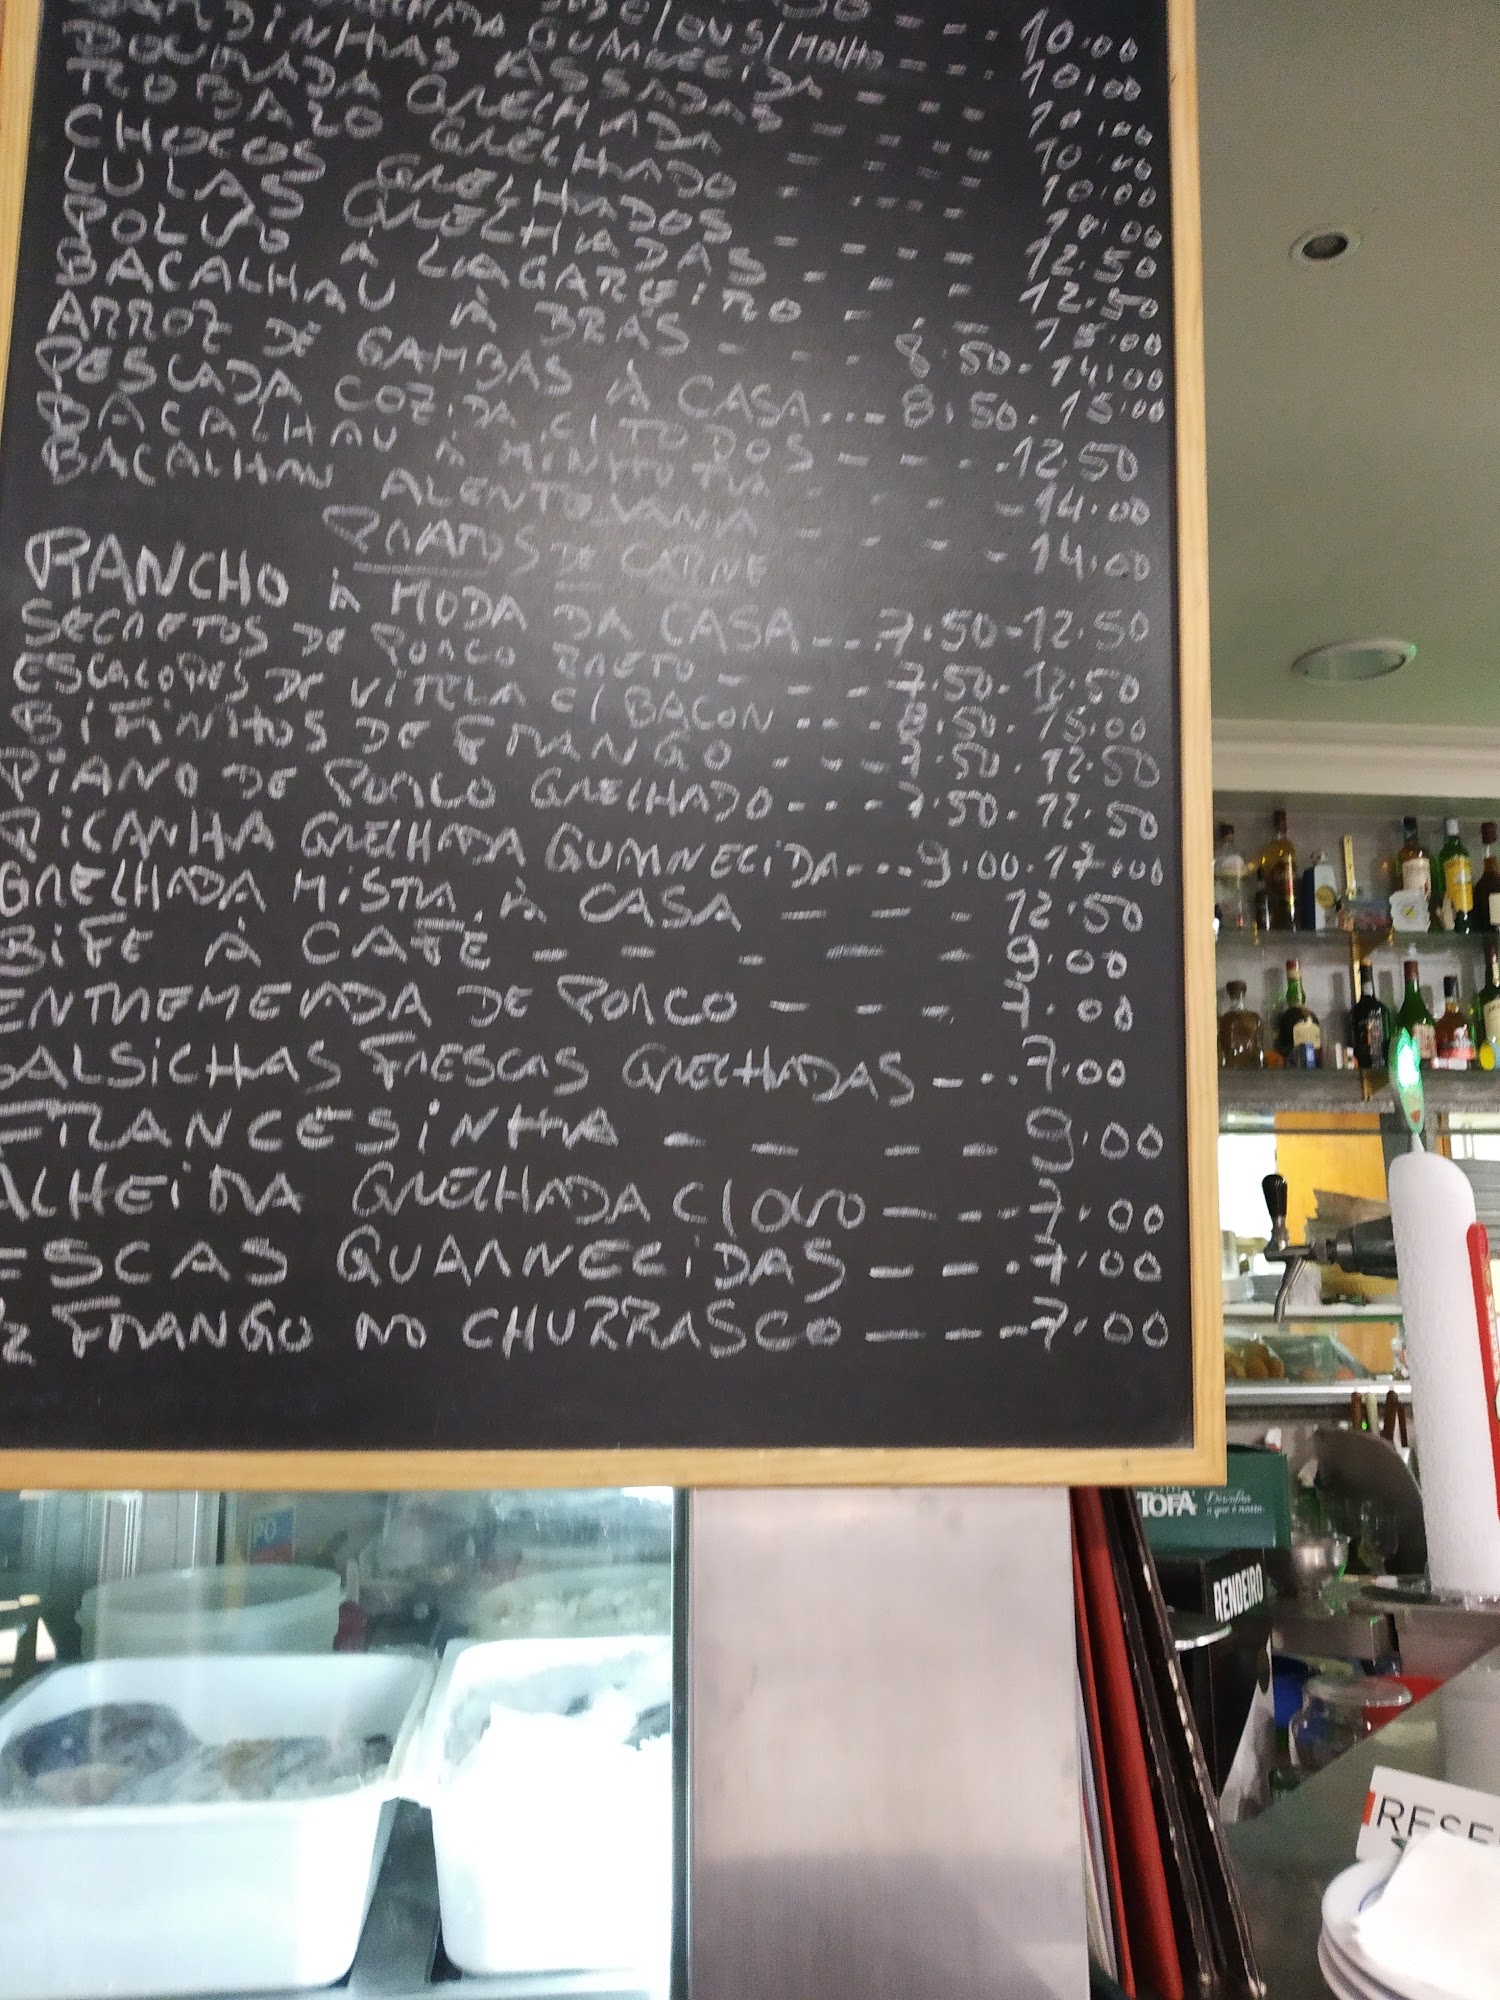 10.00
GRELHADA GUARNECIDA --- 10.00
SARDINHAS ASSADAS --- 10.00
DOURADA GRELHADA --- 10.00
ROBALO GRELHADO --- 10.00
CHOCOS GRELHADOS --- 12.50
LULAS GRELHADAS --- 12.50
POLVO À LAGAREIRO --- 15.00
BACALHAU À BRÁS --- 8.50-14.00
ARROZ DE GAMBAS À CASA...-8.50.15.00
PESCADA COZIDA C/TODOS ----.12.50
BACALHAU À MINHOTA ---- 14.00
BACALHAU ALENTEJANA ---- 14.00
PRATOS DE CARNE
RANCHO À MODA DA CASA--..7.50-12.50
SECRETOS DE PORCO PRETO ---- 7.50-12.50
ESCALOPES DE VITELA C/BACON ...-8.50.15.00
BIFINHOS DE FRANGO ..--7.50.12.50
PIANO DE PORCO GRELHADO---.7.50.12.50
PICANHA GRELHADA GUARNECIDA-...9.00.17.00
GRELHADA MISTA À CASA --- 12.50
BIFE À CAFÉ ----- 9.00
ENTREMEADA DE PORCO --- 7.00
SALSICHAS FRESCAS GRELHADAS -..7.00
FRANCESINHA ---- 9.00
ALHEIRA GRELHADA C/OVO ----7.00
ISCAS GUARNECIDAS --.7.00
FRANGO NO CHURRASCO ---7.00
TOFA
RENDEIRO
RESE